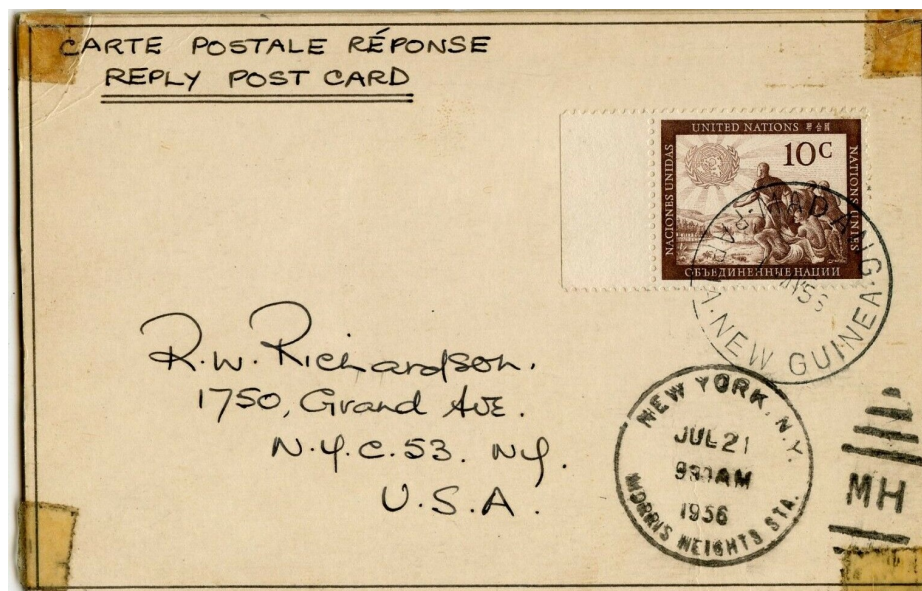 CARTE POSTALE RÉPONSE
REPLY POST CARD
UNITED NATIONS
10C
NACIONES UNIDAS
NATIONS UNIES
ОБЪЕДИНЕННЫЕ НАЦИИ
MADANG
NEW GUINEA
R.W. Richardson.
1750, Grand AVE.
N.Y.C. 53. NY.
U.S.A.
NEW YORK, N.Y.
JUL 21
AM
1956
MORRIS HEIGHTS STA.
MH